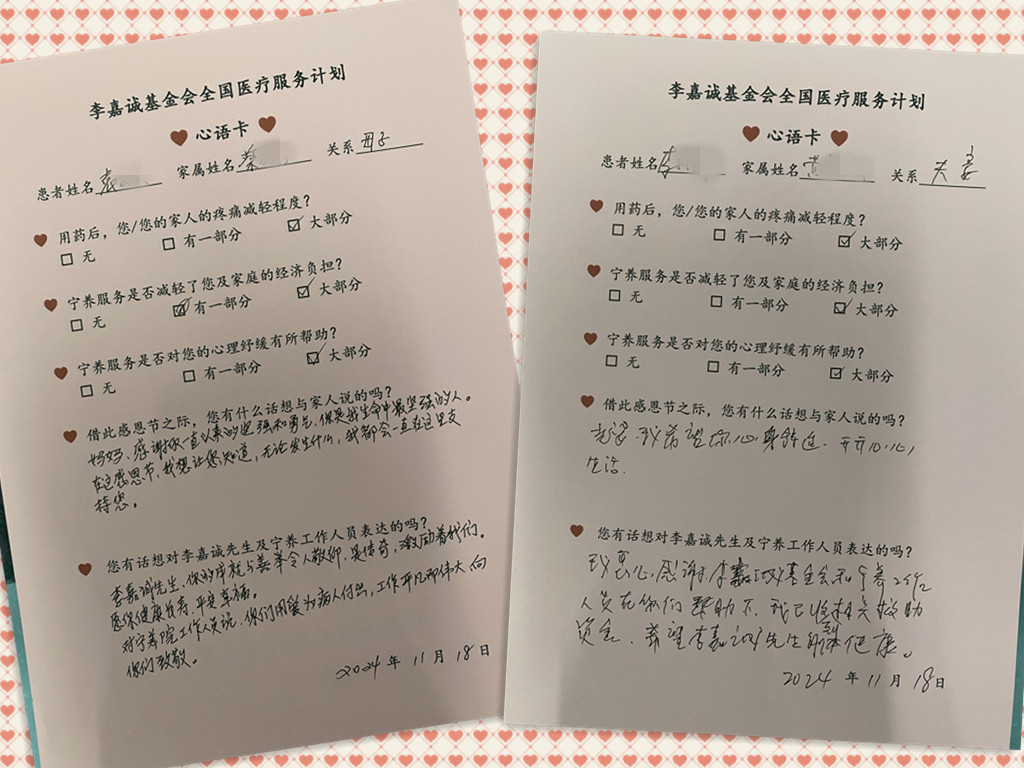 李嘉诚基金会全国医疗服务计划
心语卡
患者姓名 家属姓名 关系 母子
用药后，您/您的家人的疼痛减轻程度？
无 有一部分 大部分
宁养服务是否减轻了您及家庭的经济负担？
无 有一部分 大部分
宁养服务是否对您的心理纾缓有所帮助？
无 有一部分 大部分
借此感恩节之际，您有什么话想与家人说的吗？
妈妈，感谢你一直以来的坚强和勇气，你是我生命中最坚强的人。
在这感恩节，我想让您知道，无论发生什么，我都会一直在这里支
持您。
您有话想对李嘉诚先生及宁养工作人员表达的吗？
李嘉诚先生，你的成就与善举令人敬仰，是传奇，激励着我们。
愿你健康长寿，平安幸福。
对宁养院工作人员说，你们用爱为病人付出，工作平凡却伟大，向
你们致敬。
2024 年 11 月 18 日
李嘉诚基金会全国医疗服务计划
心语卡
患者姓名 李 家属姓名 黄 关系 夫妻
用药后，您/您的家人的疼痛减轻程度？
无 有一部分 大部分
宁养服务是否减轻了您及家庭的经济负担？
无 有一部分 大部分
宁养服务是否对您的心理纾缓有所帮助？
无 有一部分 大部分
借此感恩节之际，您有什么话想与家人说的吗？
老婆，我希望你心身舒适，开开心心
生活.
您有话想对李嘉诚先生及宁养工作人员表达的吗？
我衷心感谢李嘉诚基金会和宁养工作
人员在你们帮助下，我已 相关救助
资金，希望李嘉诚先生 健康。
2024 年 11 月 18 日